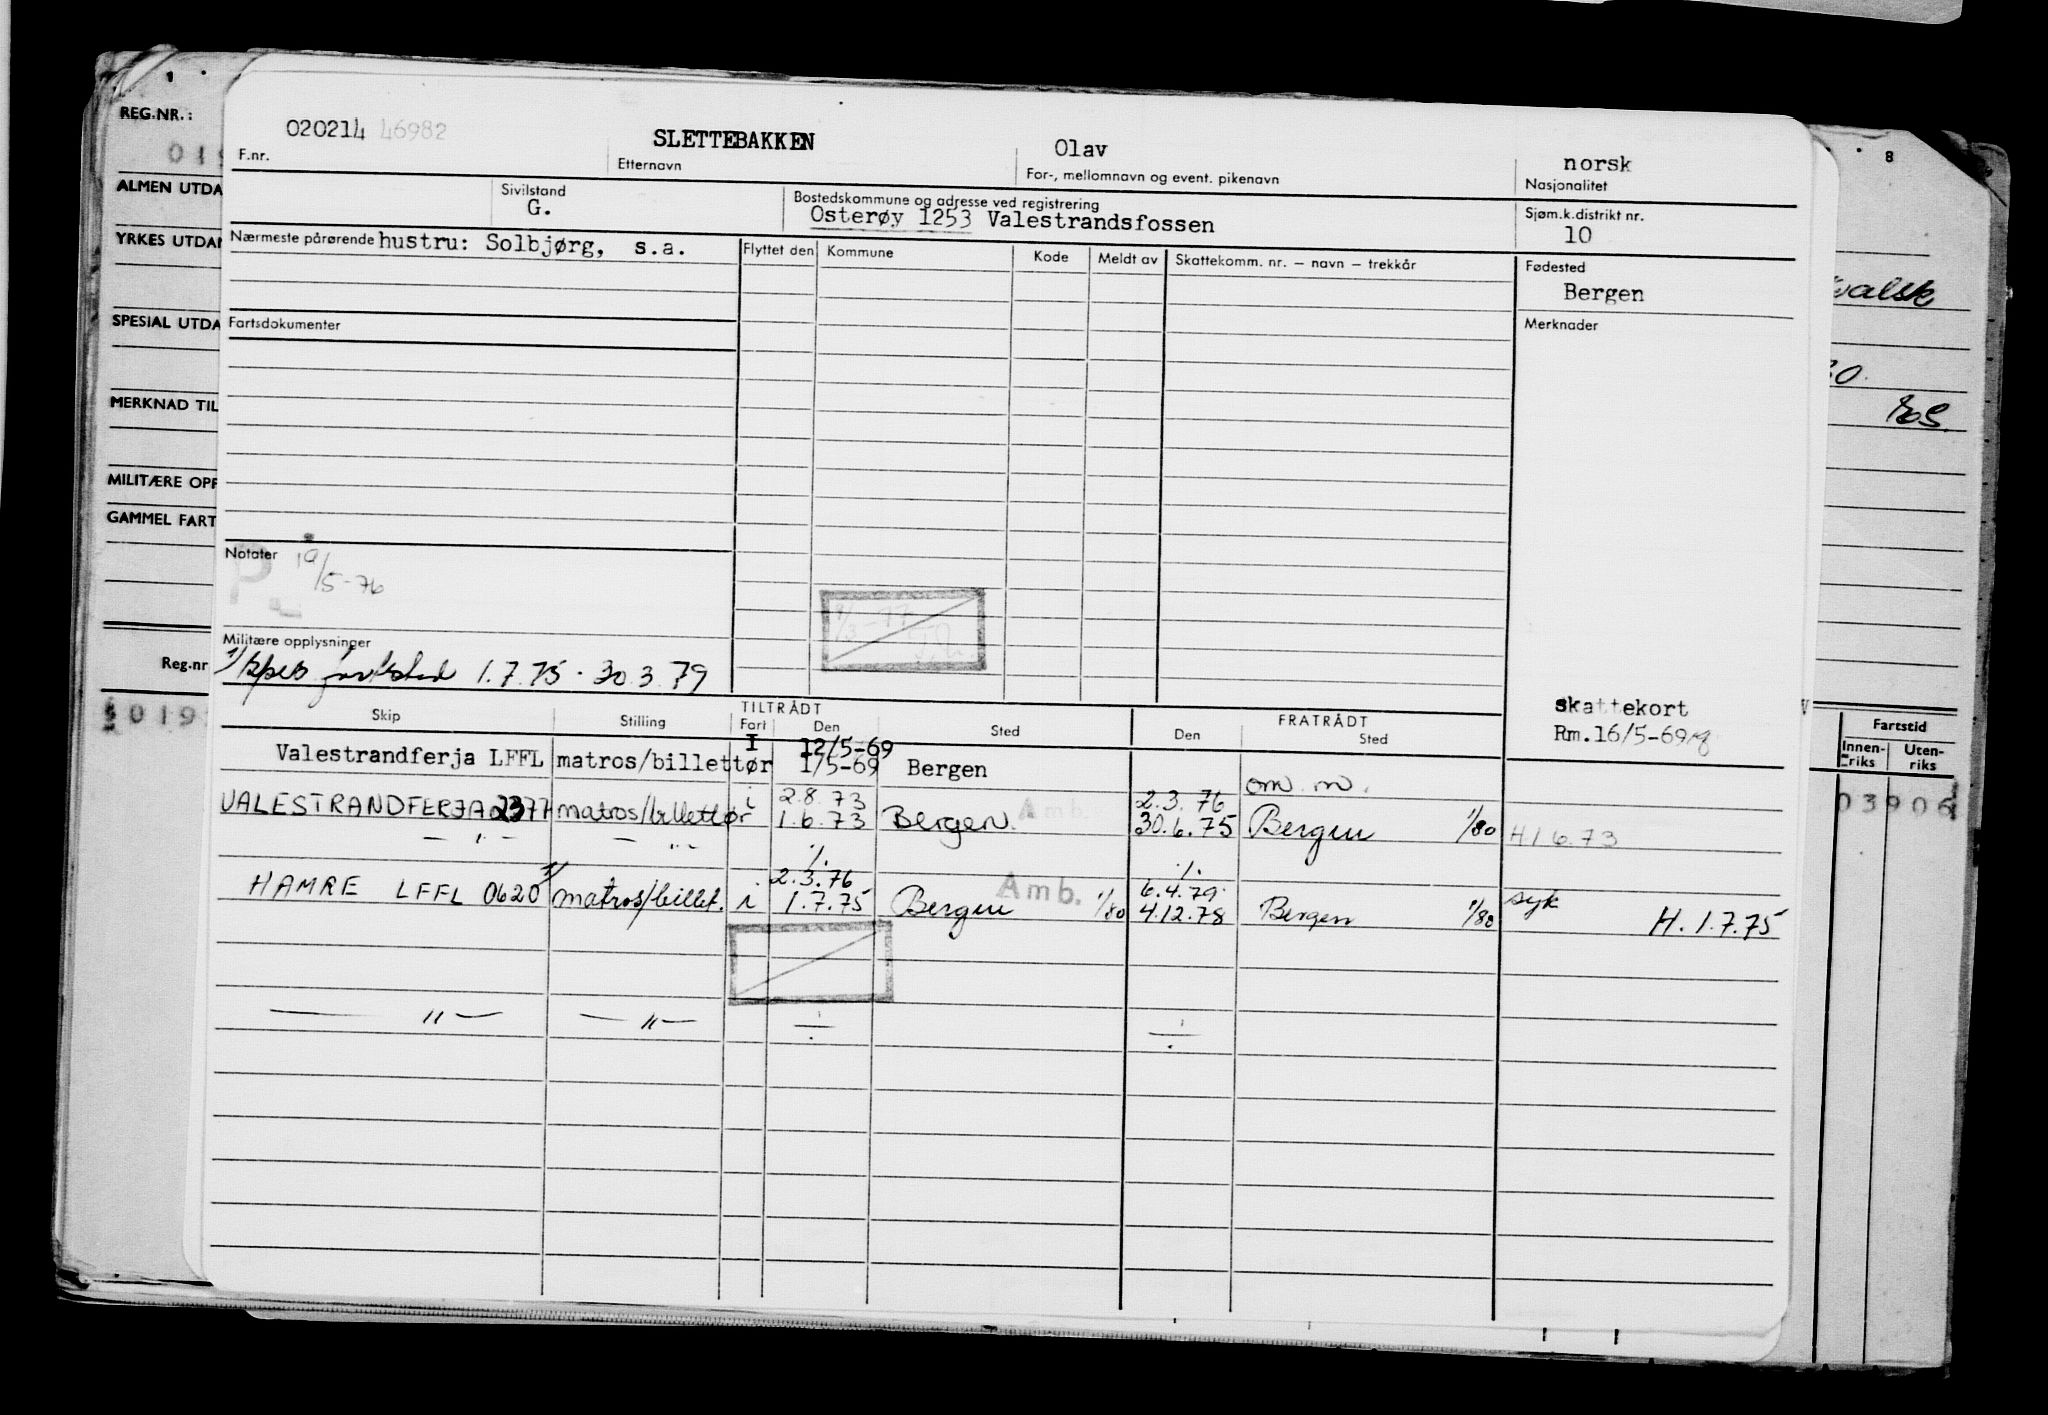 REG.NR.:
019
ALMEN UTDA
YRKES UTDAN
SPESIAL UTDA
MERKNAD TIL
MILITÆRE OPP
GAMMEL FART
Reg.nr
019
020214 46982
F.nr.
SLETTEBAKKEN
Etternavn
Olav
For-, mellomnavn og event. pikenavn
norsk
Nasjonalitet
Sivilstand
G.
Bostedskommune og adresse ved registrering
Osterøy 1253 Valestrandsfossen
Sjøm.k.distrikt nr.
10
Nærmeste pårørende hustru: Solbjørg, s.a.
Flyttet den Kommune Kode Meldt av Skattekomm. nr. – navn – trekkår
Fødested
Bergen
Fartsdokumenter
Merknader
Notater
P
19/5-76
1/3-77
Militære opplysninger
1/ 1.7.75 - 30.3.79
skattekort
Rm.16/5-69
TILTRÅDT FRATRÅDT
Skip Stilling Fart Den Sted Den Sted
I 12/5-69
Valestrandferja LFFL matros/billettør 1/5-69 Bergen
i 2.8.73 2.3.76 om m.
VALESTRANDFERJA 2377 matros/billettør 1.6.73 Bergen. Amb. 30.6.75 Bergen 1/80 H 1 6.73
— " — — " — ./. ./.
2.3.76 6.4.79
HAMRE LFFL 0620 1/ matros/billet. i 1.7.75 Bergen Amb. 1/80 4.12.78 Bergen 1/80 syk H. 1.7.75
— " — — " — ÷ ÷
8
valsk
30.
Fartstid
Innen-
riks
Uten-
riks
03906